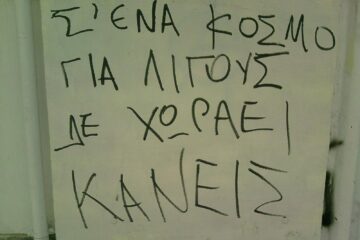 Σ' ΕΝΑ ΚΟΣΜΟ
ΓΙΑ ΛΙΓΟΥΣ
ΔΕ ΧΩΡΑΕΙ
ΚΑΝΕΙΣ